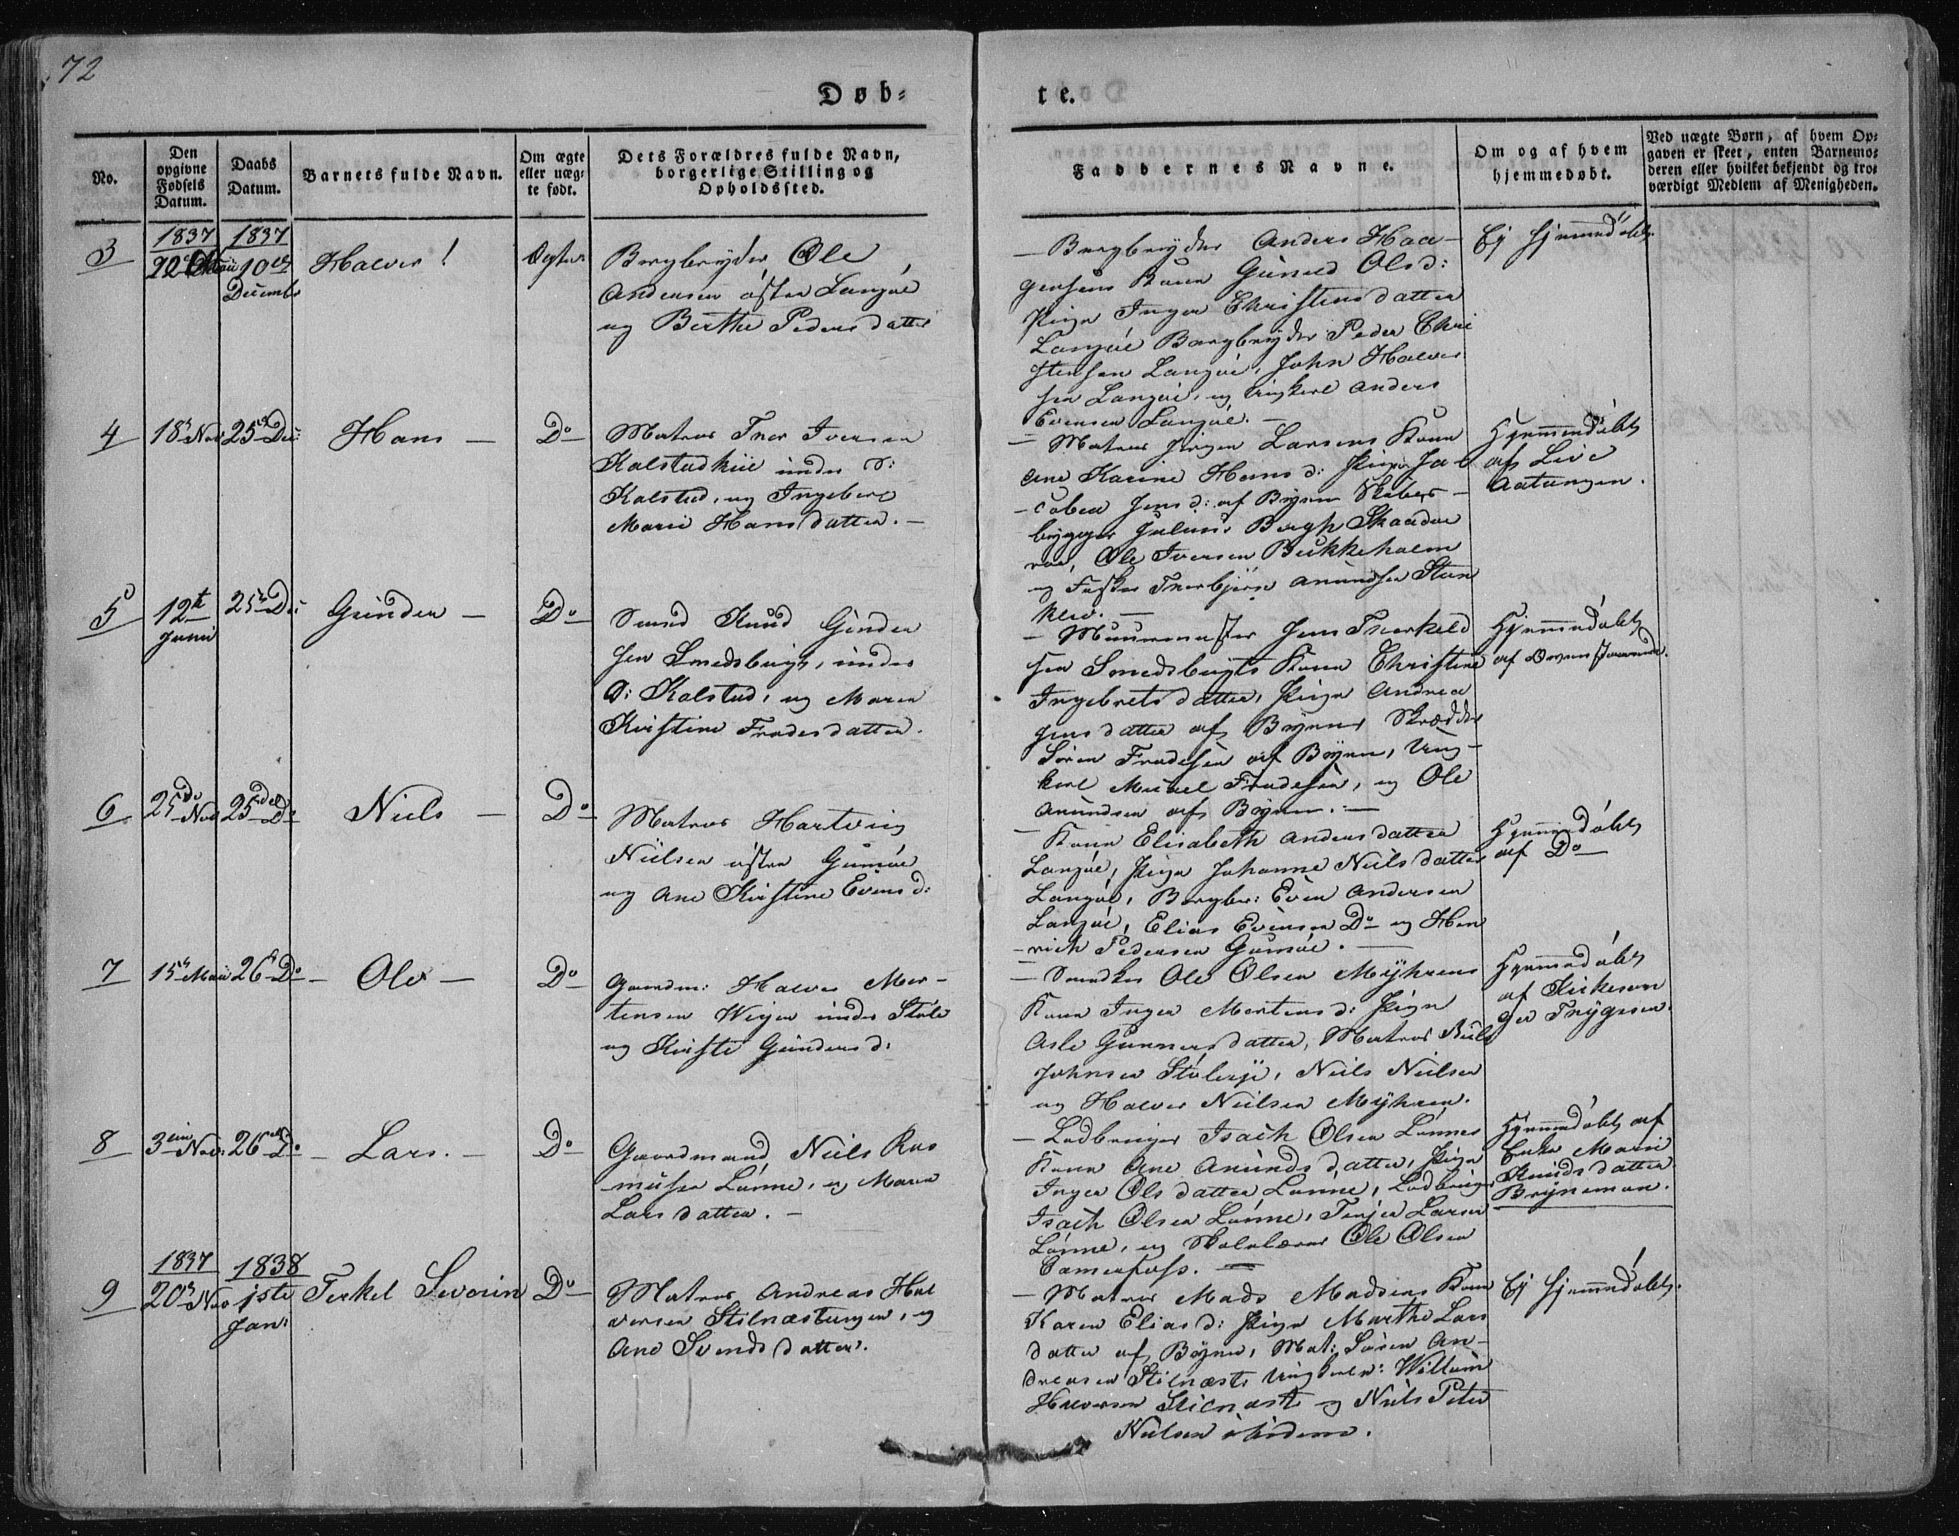 72
Døb-
te.
No.
Den opgivne Fødsels Datum.
Daabs Datum.
Barnets fulde Navn.
Om ægte eller uæg-te født.
Dets Forældres fulde Navn, borgerlige Stilling og Opholdssted.
Faddernes Navne.
Om og af hvem hjemmedøbt.
Ved uægte Børn, af hvem Op-
gaven er skeet, enten Barnemo-
deren eller hvilket bekjendt og tro-
værdigt Medlem af Menigheden.
1837 1837
3 22 10de Halver! Ægte
Decembr
Bergbryder Ole
Andersen østre Langøe
og Berthe Peders datter
Bergbryder Anders Haa-
gensens Kone Gunild Olsd:
Pige Inger Christensdatter
Langøe Bergbryder Peder Chri
stensen Langøe, John Halver
sen Langøe, og Ungkerl Anders
Evensen Langøe. -
Ej hjemmedøbt
4 18 Nov 25 De Hans - Do
Matros Thor Iversen
Kalstadkiil under S:
Kalstad, og Ingeborg
Marie Hansdatter. -
- Matros Jørgen Larsens Kone
Ane Karine Hansd: Pige Ja-
cobea Jensd: af Byen Skibs-
bygger Julius Bergh Skaadse
, Ole Iversen Bukkeholm
og Fisker Thorbjørn Anundsen Sten
kløv. -
Hjemmedøbt
af Live
Aatangen.
5 12t 25 De Gunder - Do
Junii
Smed Knud Gunder
sen Smedsbugt, under
S: Kalstad, og Maren
Kirstine Frodesdatter.
- Muurmester Jens Thorkeld
sen Smedsbugts Kone Christine
Ingebrets datter, Pige Andrea
Jensdatter af Byen, Skrædder
Søren Frodesen af Byen, Ung-
kerl Mikkel Frodesen, og Ole
Anundsen af Byen. -
Hjemmedøbt
af
6 25de Nov 25de Do Niels - Do
Matros Hartvig
Nielsen østre Gumøe
og Ane Kirstine Evensd:
- Kone Elisabeth Andersdatter
Langøe, Pige Johanne Nielsdatter
Langøe, Bergbr: Even Andersen
Langøe, Elias Evensen Do og Hen
-rich Pedersen Gumøe. -
Hjemmedøbt
af Do
7 15 Maii 26 Do - Ole - Do
Gaardm: Halver Mor-
tensen Weien under Støle
og Kirsti Gundersd:
- Snedker Ole Olsen Myhrens
Kone Inger Mortensd: Pige
Asle Gunnersdatter, Matros Niels
Johnsen Stølerje, Niels Nielsen
og Halver Nielsen Myhren.
Hjemmedøbt
af Kirkesan
ger Trygsen.
8 3die Nov 26de Do - Lars. - Do
Gaardmand Niels Ras
-mussen Lønne, og Maren
Lars datter. -
- Ledbruger Isach Olsen Lønnes
Kone Ane Anunds datter, Pige
Inger Ols datter Lønne, Ledbruger
Isach Olsen Lønne, Terjer Larsen
Lønne, og Skolelærer Ole Olsen
Camerfoss. -
Hjemmedøbt af
Enke Maren
Knudsdatter
Brynemoen.
1837 1838
9 20 Nov 1ste Terkel Severin Do
Jan:
Matros Andreas Hal
vorsen Stilnæstangen, og
Ane Svends datter.
- Matros Mads Madsens Kone
Karen Eliasd: Pige Marthe Lars
datter af Byen, Mat: Søren An-
dreasen Stilnæst Ungkerle: Willum
Halvorsen Stilnæst og Niels Peter
Nielsen ibidem.
Ej hjemmedøbt.